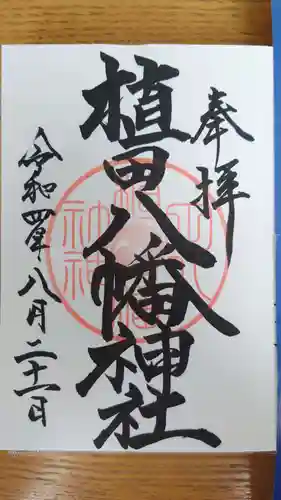 奉拝
植田八幡神社
令和四年八月二十一日